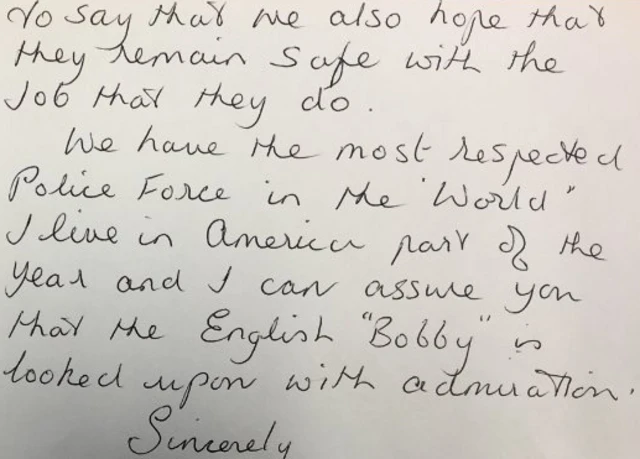 To say that we also hope that
they remain safe with the
Job that they do.
We have the most respected
Police Force in the "World"
I live in America part of the
Year and I can assure you
that the English "Bobby" is
looked upon with admiration.
Sincerely